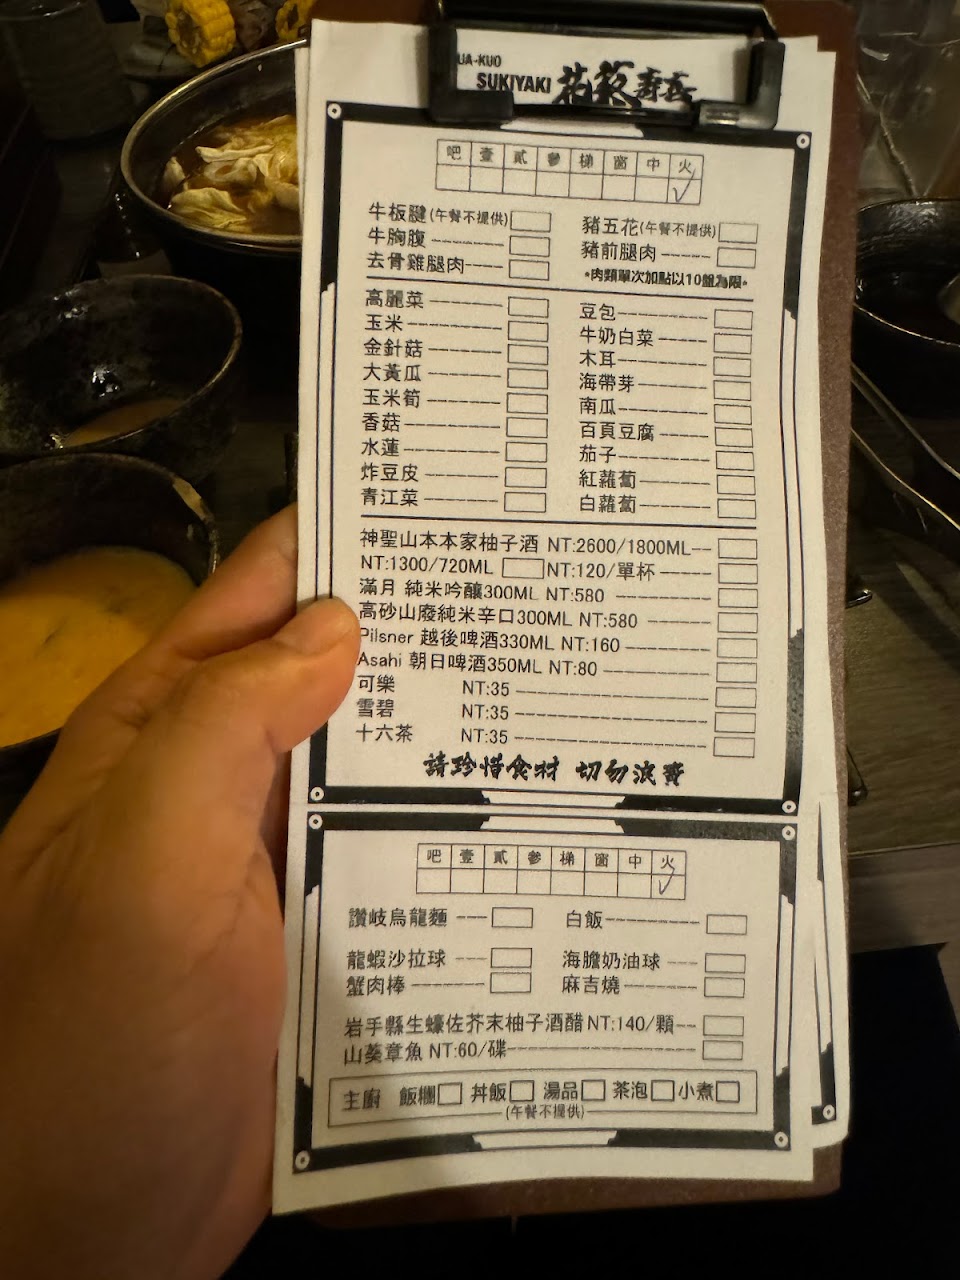 UA-KUO
SUKIYAKI 花菊壽喜
吧 壹 貳 參 梯 窗 中 火
牛板腱(午餐不提供) 豬五花(午餐不提供)
牛胸腹 豬前腿肉
去骨雞腿肉 *肉類單次加點以10盤為限*
高麗菜 豆包
玉米 牛奶白菜
金針菇 木耳
大黃瓜 海帶芽
玉米筍 南瓜
香菇 百頁豆腐
水蓮 茄子
炸豆皮 紅蘿蔔
青江菜 白蘿蔔
神聖山本本家柚子酒 NT:2600/1800ML
NT:1300/720ML NT:120/單杯
滿月 純米吟釀300ML NT:580
高砂山廢純米辛口300ML NT:580
Pilsner 越後啤酒330ML NT:160
Asahi 朝日啤酒350ML NT:80
可樂 NT:35
雪碧 NT:35
十六茶 NT:35
請珍惜食材 切勿浪費
吧 壹 貳 參 梯 窗 中 火
讚岐烏龍麵 白飯
龍蝦沙拉球 海膽奶油球
蟹肉棒 麻吉燒
岩手縣生蠔佐芥末柚子酒醋NT:140/顆
山葵章魚 NT:60/碟
主廚 飯糰 丼飯 湯品 茶泡 小煮
(午餐不提供)